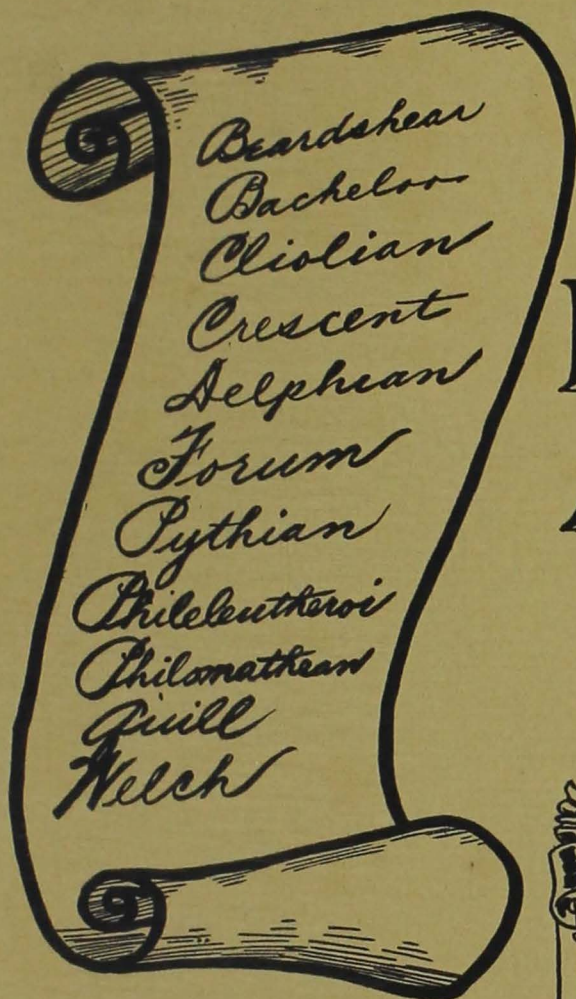 Beardshear
Bachelor
Cliolian
Crescent
Delphian
Forum
Pythian
Phileleutheroi
Philomathean
Quill
Welch